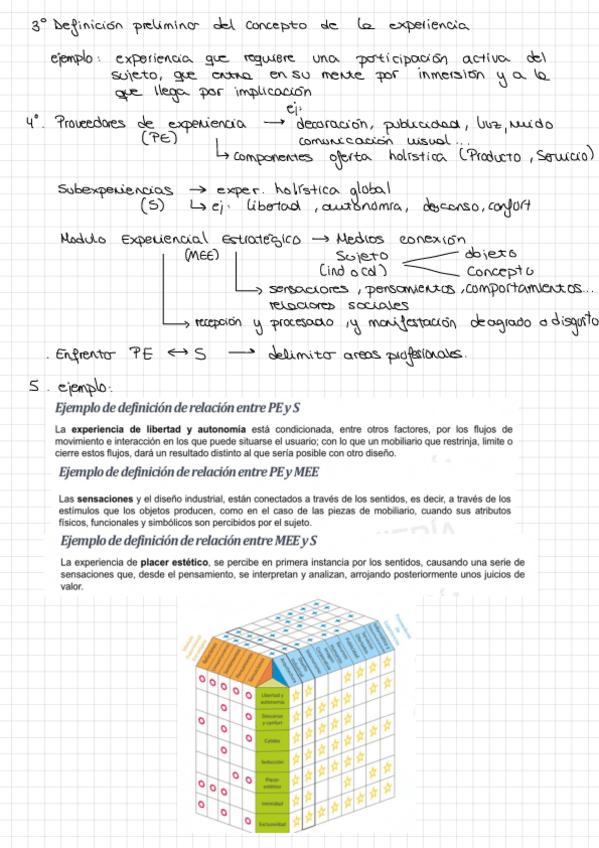 3º Definición preliminar del concepto de la experiencia
ejemplo: experiencia que requiere una participación activa del
sujeto, que entra en su mente por inmersión y a la
que llega por implicación
4º. Proveedores de experiencia → ej: decoración, publicidad, luz, ruido
(PE) comunicación visual...
↳ componentes oferta holística (Producto, Servicio)
Subexperiencias → exper. holística global
(S) ↳ ej: libertad, autonomía, descanso, confort
Modulo Experiencial Estratégico → Medios conexión
(MEE) Sujeto objeto
(ind o col) Concepto
→ sensaciones, pensamientos, comportamientos...
relaciones sociales
→ recepción y procesado, y manifestación de agrado o disgusto
. Enfrento PE ↔ S → delimito areas profesionales.
5. ejemplo:
Ejemplo de definición de relación entre PE y S
La experiencia de libertad y autonomía está condicionada, entre otros factores, por los flujos de
movimiento e interacción en los que puede situarse el usuario; con lo que un mobiliario que restrinja, limite o
cierre estos flujos, dará un resultado distinto al que sería posible con otro diseño.
Ejemplo de definición de relación entre PE y MEE
Las sensaciones y el diseño industrial, están conectados a través de los sentidos, es decir, a través de los
estímulos que los objetos producen, como en el caso de las piezas de mobiliario, cuando sus atributos
físicos, funcionales y simbólicos son percibidos por el sujeto.
Ejemplo de definición de relación entre MEE y S
La experiencia de placer estético, se percibe en primera instancia por los sentidos, causando una serie de
sensaciones que, desde el pensamiento, se interpretan y analizan, arrojando posteriormente unos juicios de
valor.
Libertad y
autonomía
Descanso
y confort
Cuidado
Seducción
Placer
estético
Intimidad
Exclusividad